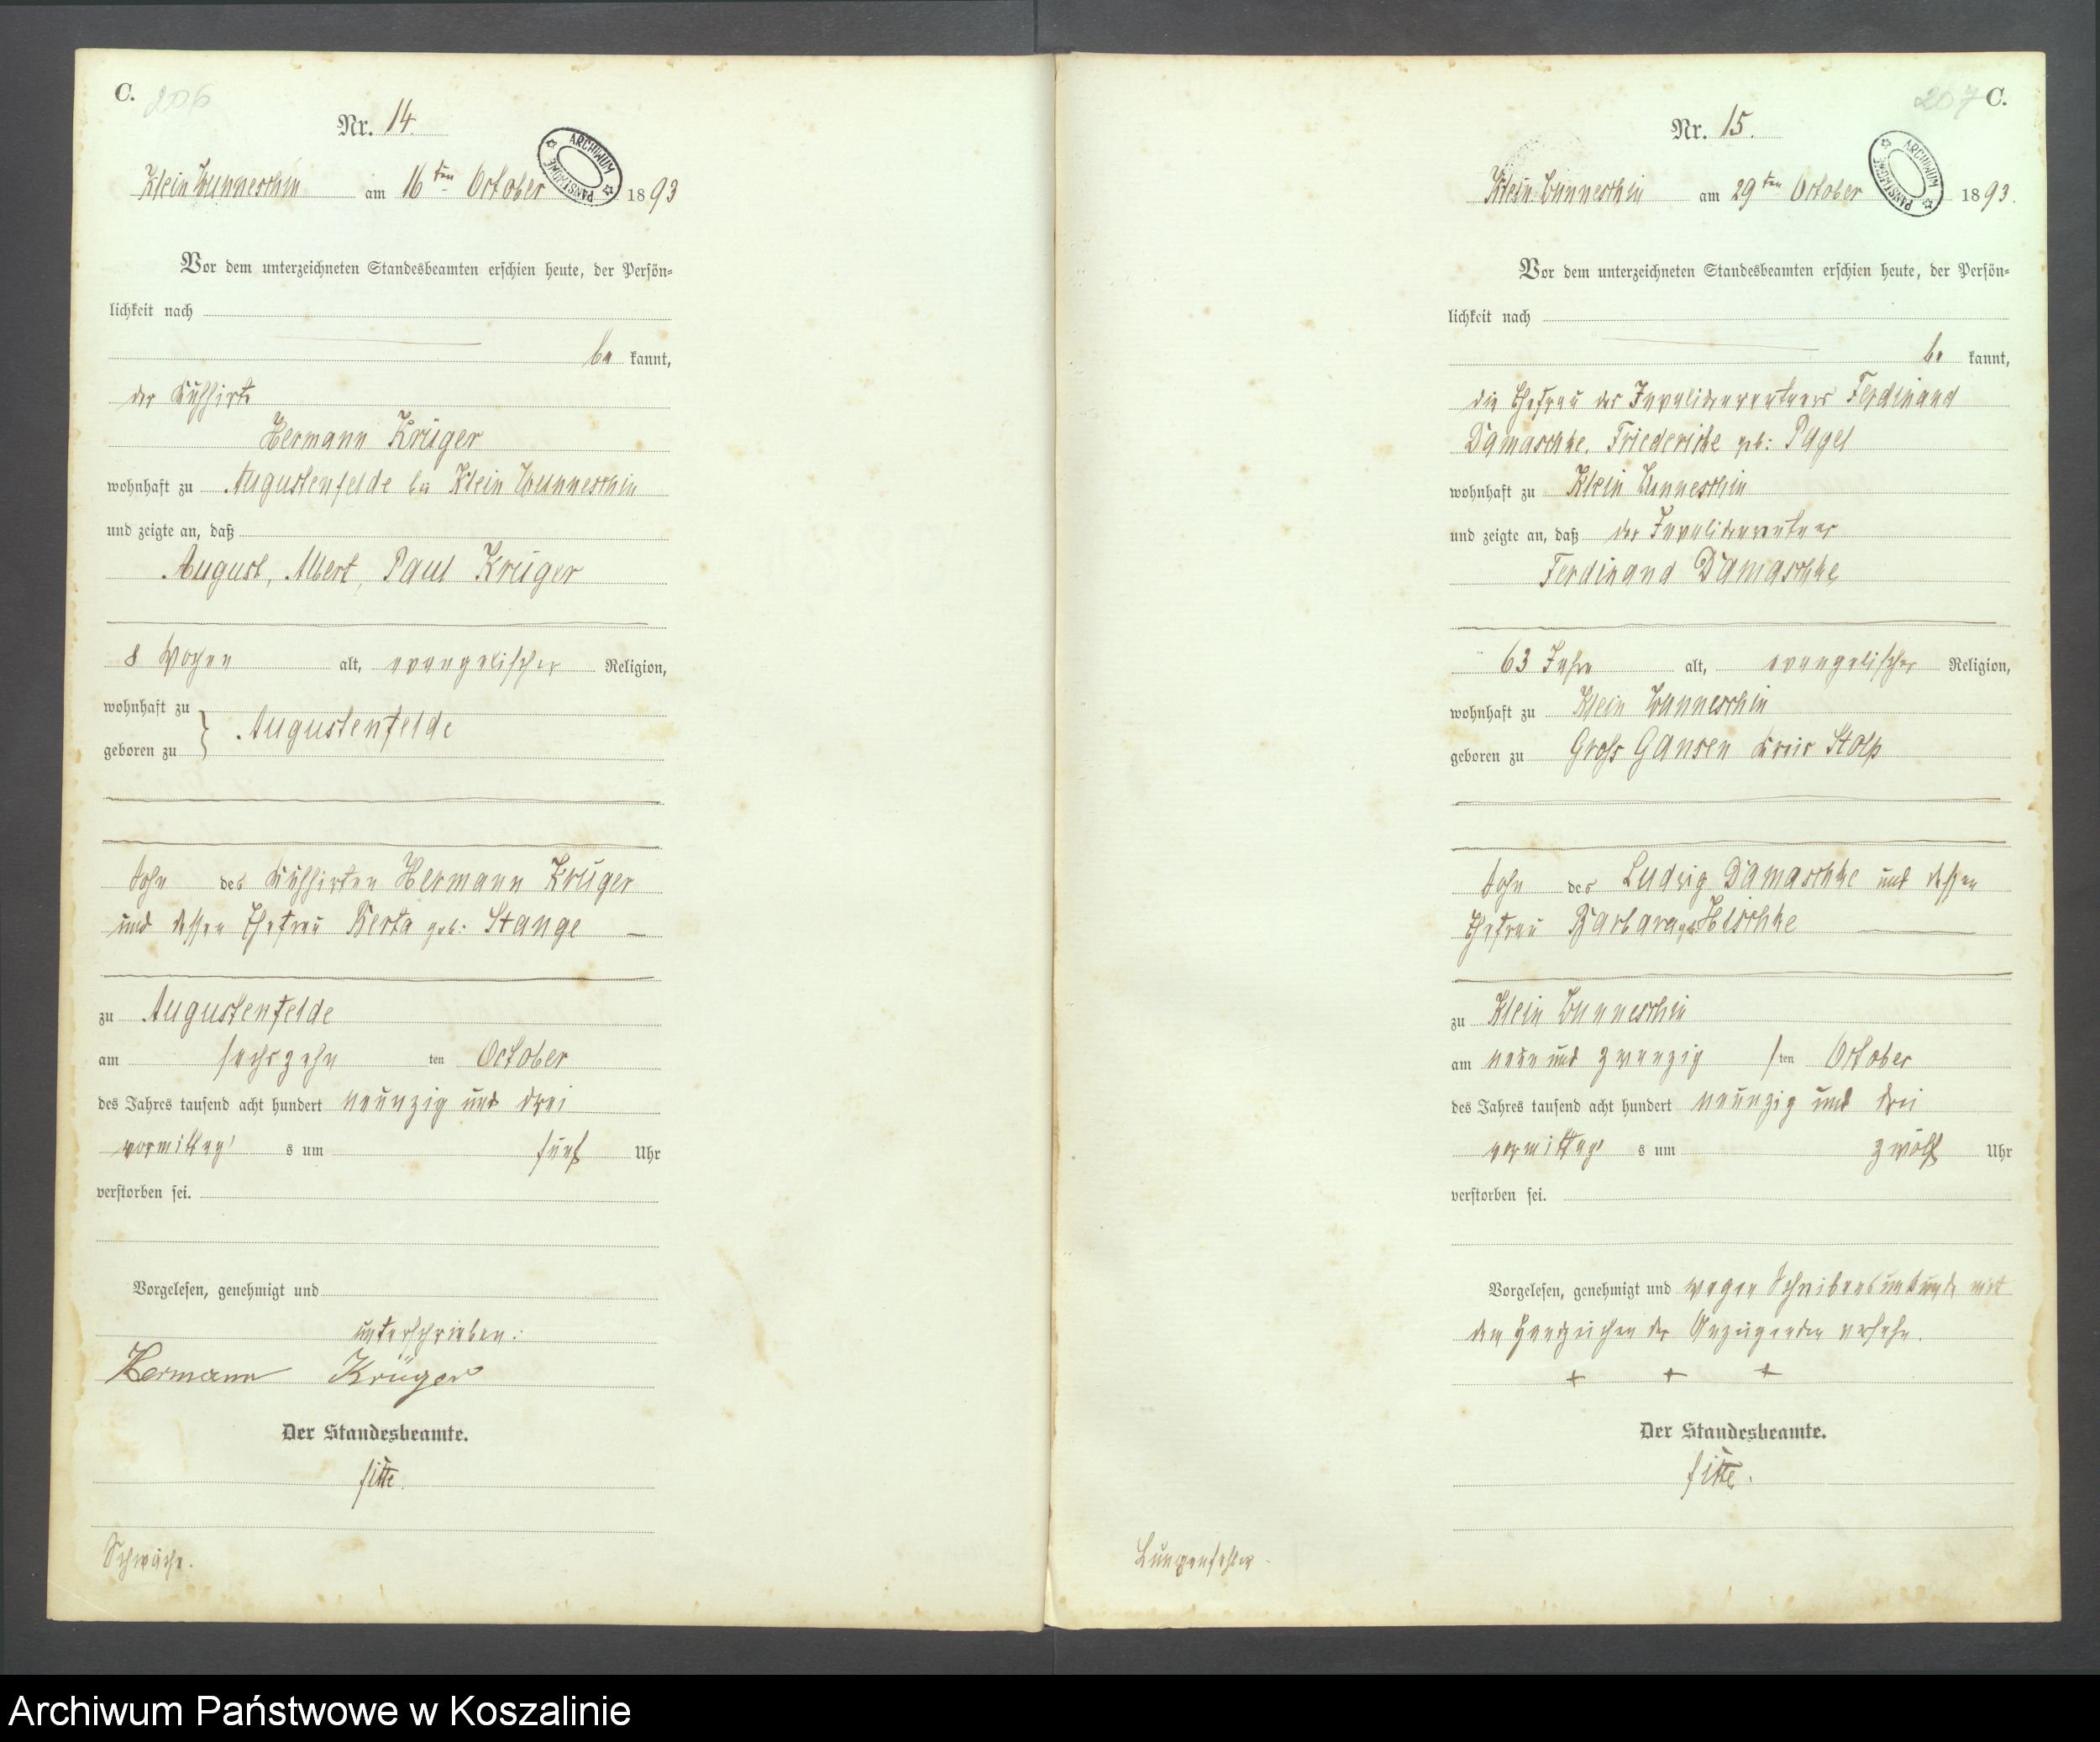 C. 206
Nr. 14.
ARCHIWUM PAŃSTWOWE
Klein Wunneschin am 16ten October 1893
Vor dem unterzeichneten Standesbeamten erschien heute, der Persön-
lichkeit nach
be kannt,
der Kuhhirte
Hermann Krüger
wohnhaft zu Augustenfelde bei Klein Wunneschin
und zeigte an, daß
August, Albert, Paul Krüger
8 Wochen alt, evangelischer Religion,
wohnhaft zu
geboren zu } Augustenfelde
Sohn des Kuhhirten Hermann Krüger
und dessen Ehefrau Berta geb: Stange
zu Augustenfelde
am sechszehn ten October
des Jahres tausend acht hundert neunzig und drei
vormittag s um fünf Uhr
verstorben sei.
Vorgelesen, genehmigt und
unterschrieben:
Hermann Krüger
Der Standesbeamte.
Schwäche.
207 C.
Nr. 15.
ARCHIWUM PAŃSTWOWE
Klein Wunneschin am 29ten October 1893.
Vor dem unterzeichneten Standesbeamten erschien heute, der Persön-
lichkeit nach
be kannt,
die Ehefrau des Invalidenrentners Ferdinand
Damaschke, Friederike geb: Pagel
wohnhaft zu Klein Wunneschin
und zeigte an, daß der Invalidenrentner
Ferdinand Damaschke
63 Jahre alt, evangelischer Religion,
wohnhaft zu Klein Wunneschin
geboren zu Groß Gansen Kreis Stolp
Sohn des Ludwig Damaschke und dessen
Ehefrau Barbara geb. Hischke
zu Klein Wunneschin
am neun und zwanzig sten October
des Jahres tausend acht hundert neunzig und drei
vormittags s um zwölf Uhr
verstorben sei.
Vorgelesen, genehmigt und wegen Schreibensunkunde mit
dem Handzeichen der Anzeigenden versehn.
+ + +
Der Standesbeamte.
Lungenfehler.
Archiwum Państwowe w Koszalinie